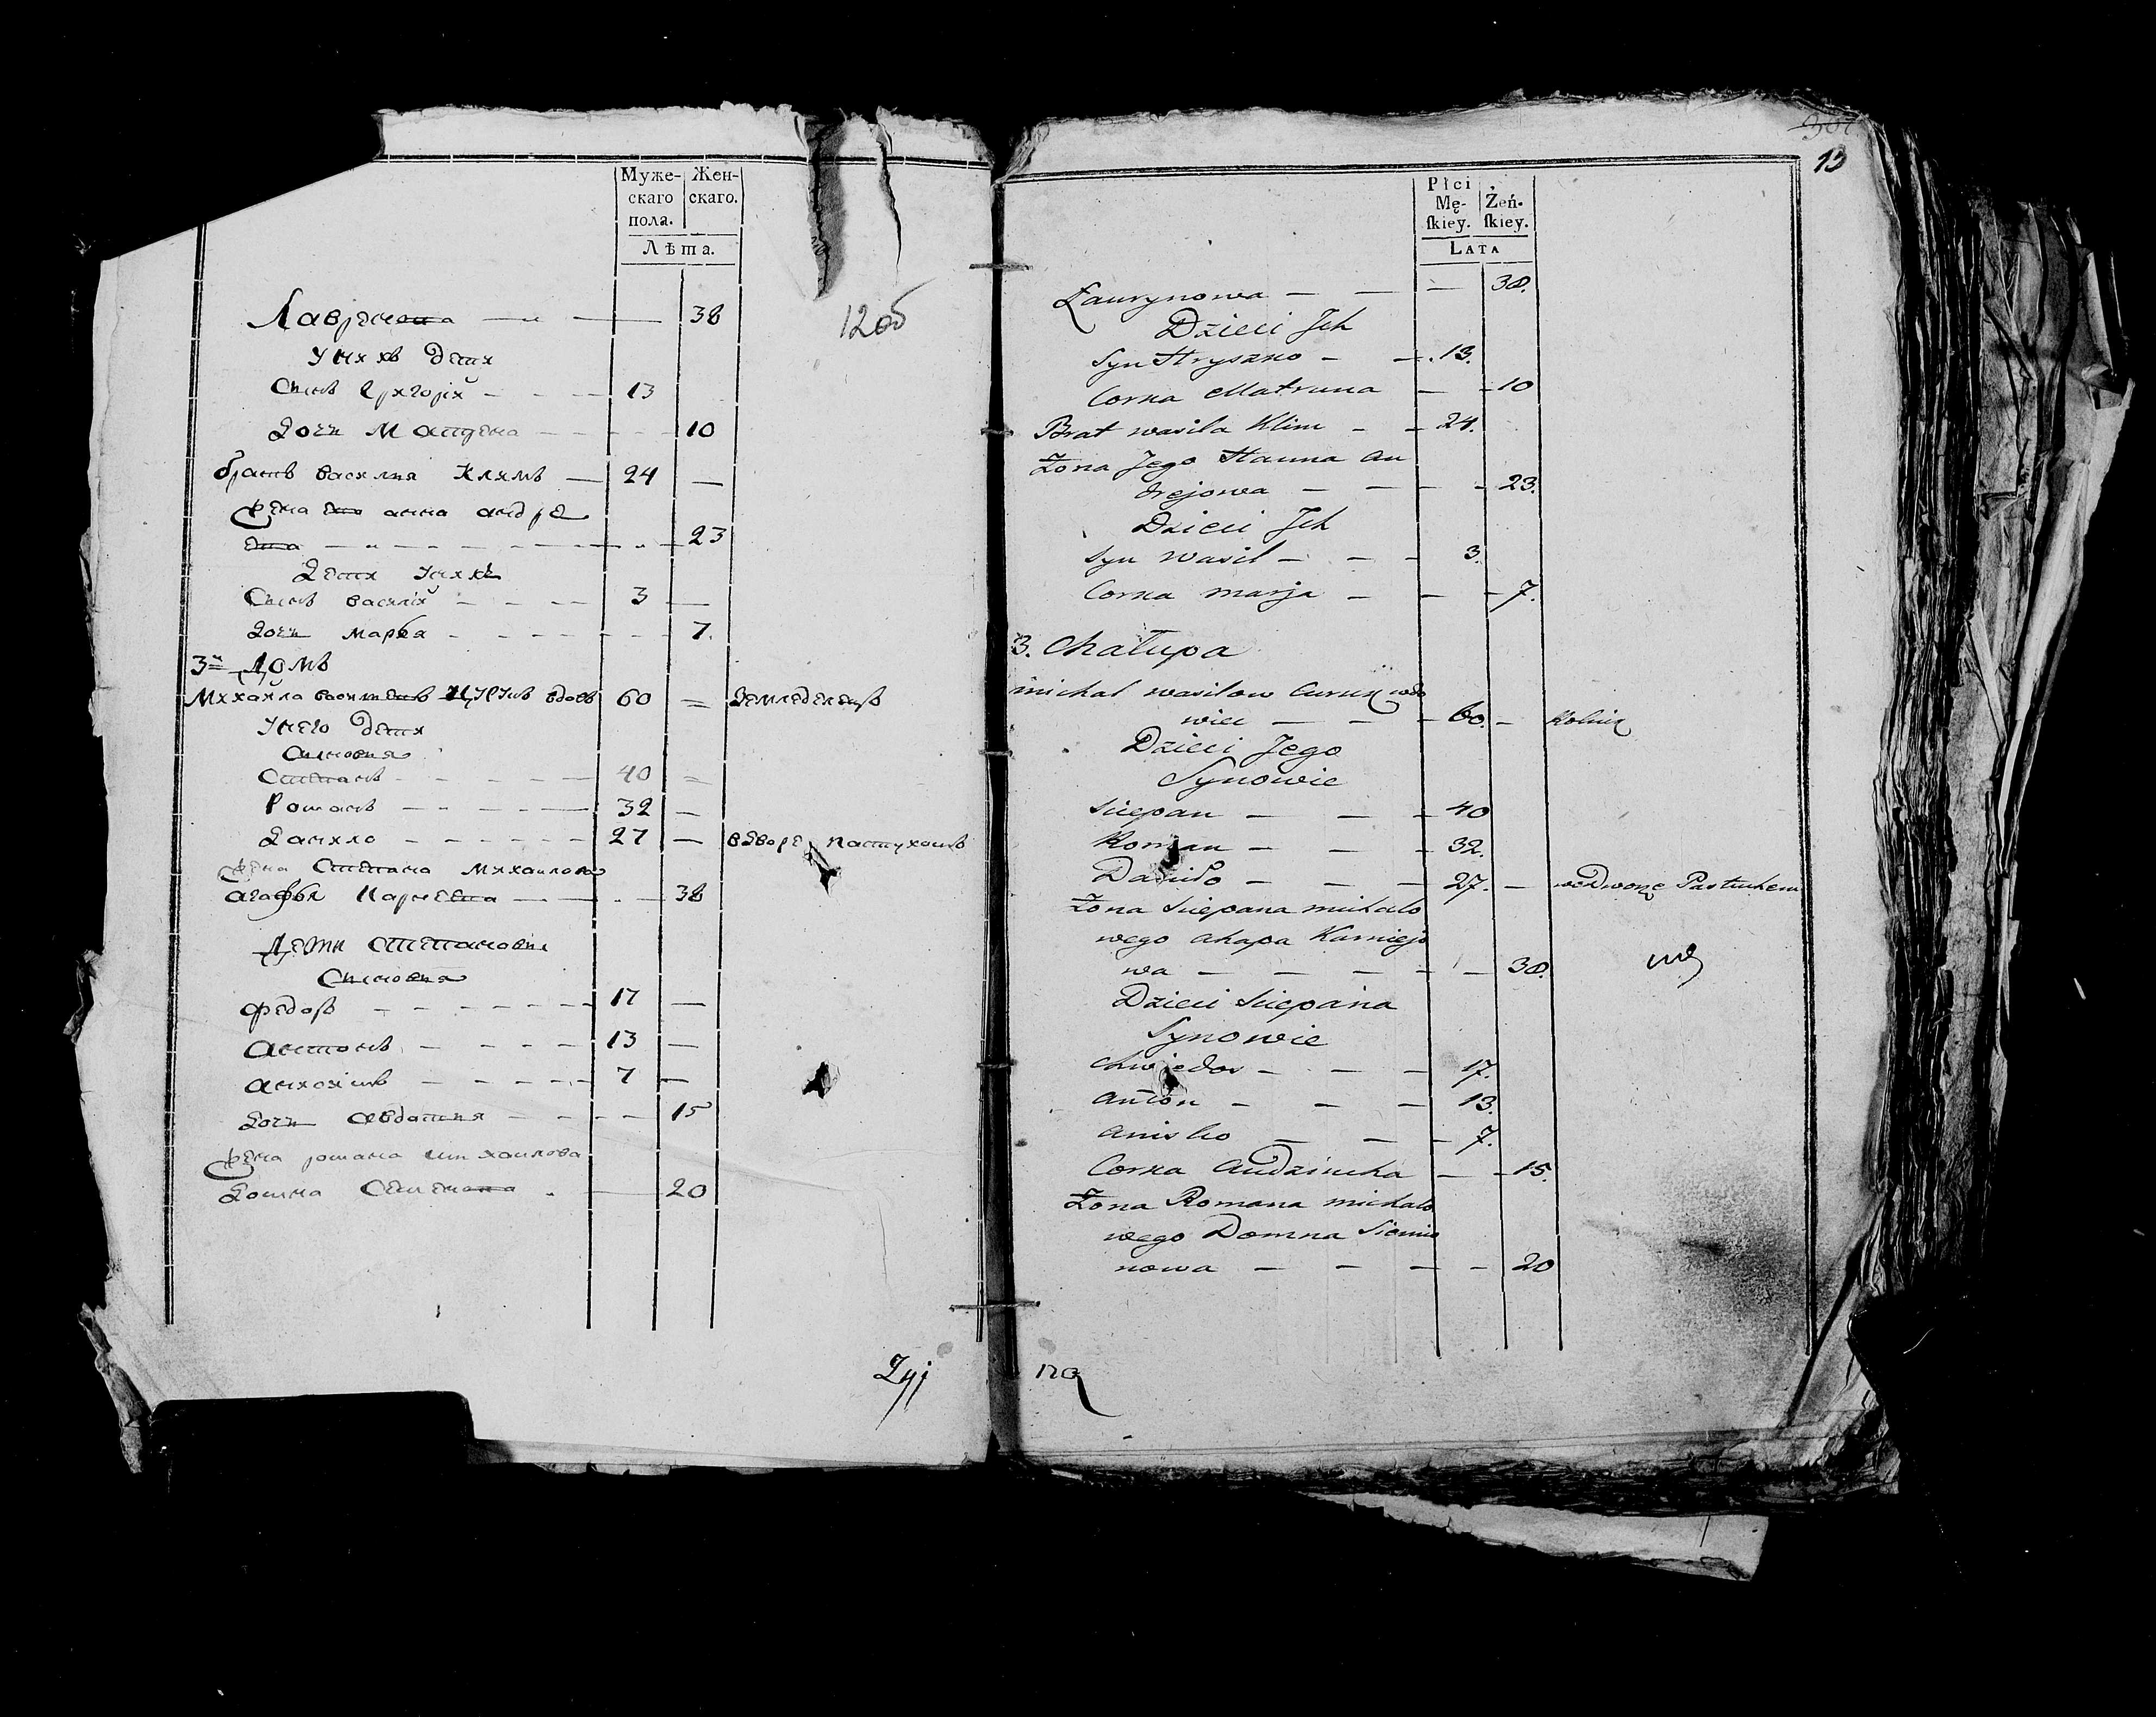 Муже-
скаго
пола.
Жен-
скаго.
Лѣта.
Лавренова 38
У нихъ дети
Синъ Григорій 13
Дочь Матрена 10
братъ василия Климъ 24
жена его анна андре
ева 23
Дети у нихъ
Синъ василій 3
Дочь марья 7.
3й Домъ
Михайла васильевъ вдовъ 60 Земледелецъ
У него дети
синовья
Степанъ 40
Романъ 32
Данило 27 в дворе пастухомъ
жена Степана Михаилова
агафья Карнеева 38
Дети Степановы
Синовья
Федоръ 17
Антонъ 13
7
Дочь авдотия 15
жена романа михаилова
Домна Семенова 20
12 об
307
13
Płci
Mę-
skiey.
Żeń-
skiey.
LATA
Ławrynowa 38.
Dzieci Jch
Syn Hryszko 13.
Corka Matruna 10
Brat wasila Klim 24.
Żona Jego Hanna an
drejowa 23.
Dzieci Jch
Syn wasil 3.
Corka marja 7.
3. Chałupa
michal wasilow wdo
wiec 60. Rolnik
Dzieci Jego
Synowie
Sciepan 40
Roman 32.
Daniło 27. we Dworze Pastuchem
Żona Sciepana michało
wego ahapa Karniejo
wa 38.
Dzieci Sciepana
Synowie
Chwiedor 17.
anton 13.
anisko 7.
Corka 15.
Żona Romana michało
wego Domna Siemio
nowa 20